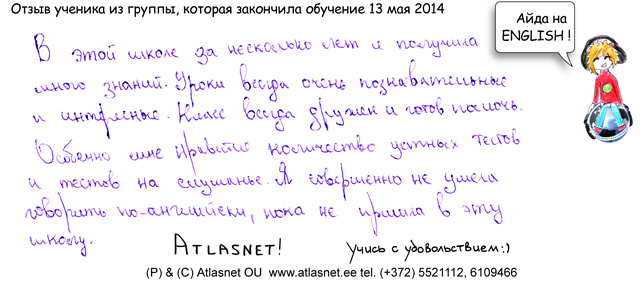 Отзыв ученика из группы, которая закончила обучение 13 мая 2014
Айда на
ENGLISH !
В этой школе за несколько лет я получила
много знаний. Уроки всегда очень познавательные
и интересные. Класс всегда дружен и готов помочь.
Особенно мне нравится количество устных тестов
и тестов на слушанье. Я совершенно не умела
говорить по-английски, пока не пришла в эту
школу.
ATLASNET!
Учись с удовольствием:)
(P) & (C) Atlasnet OU www.atlasnet.ee tel. (+372) 5521112, 6109466